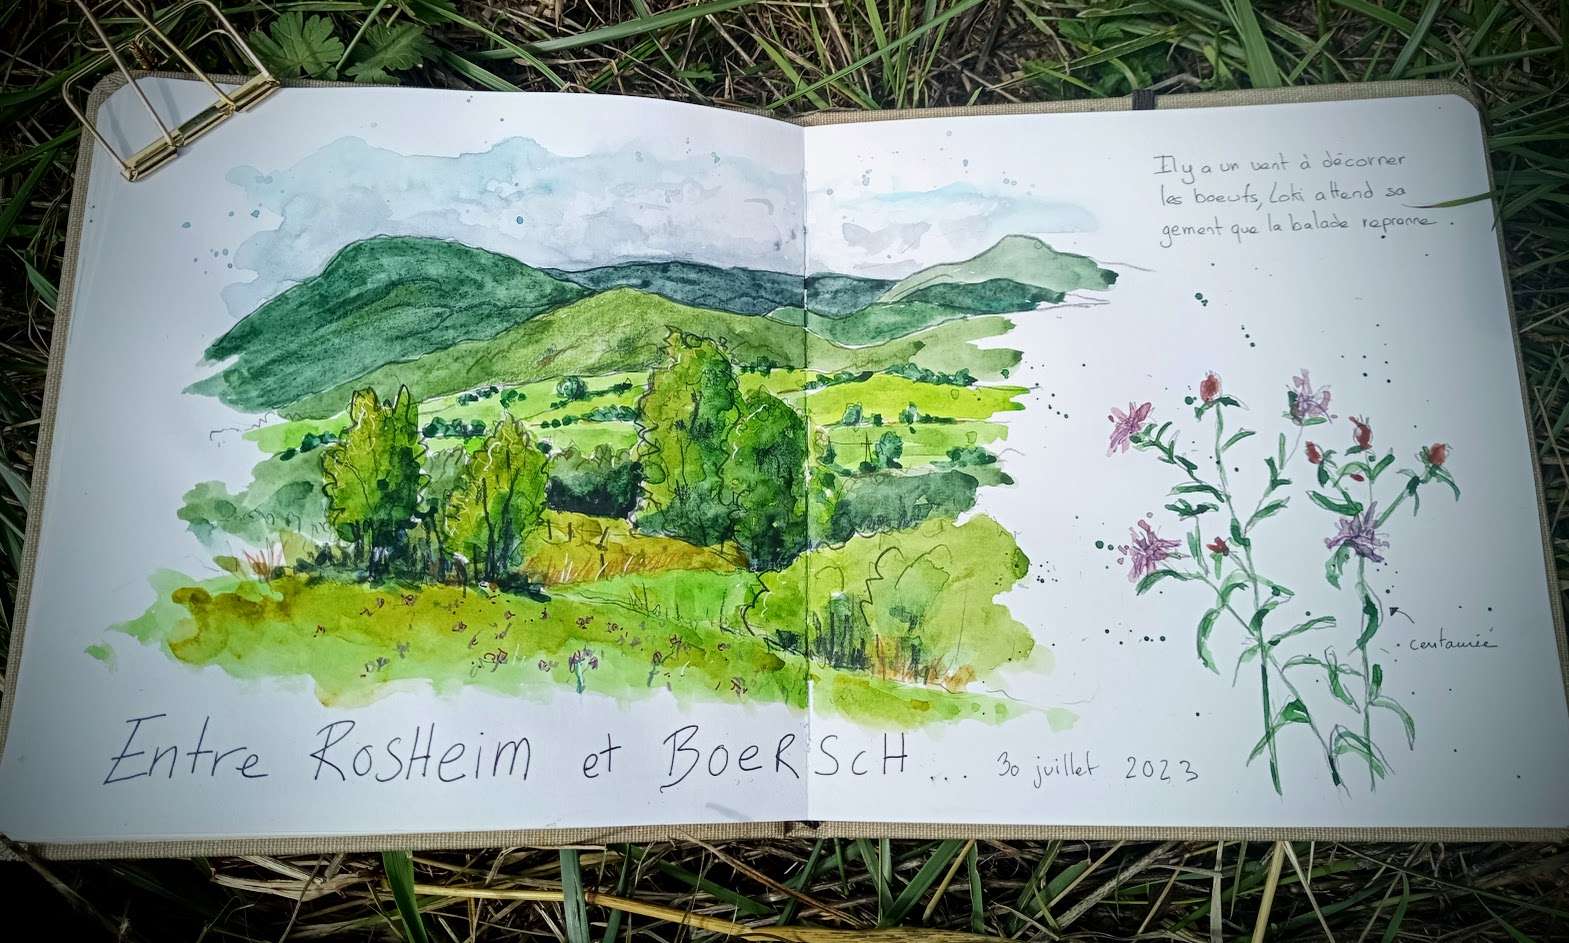 Il y a un vent à décorner
les boeufs, Loki attend sa
gement que la balade reprenne.
centaurée
Entre RosHeim et BoeRScH... 30 juillet 2023